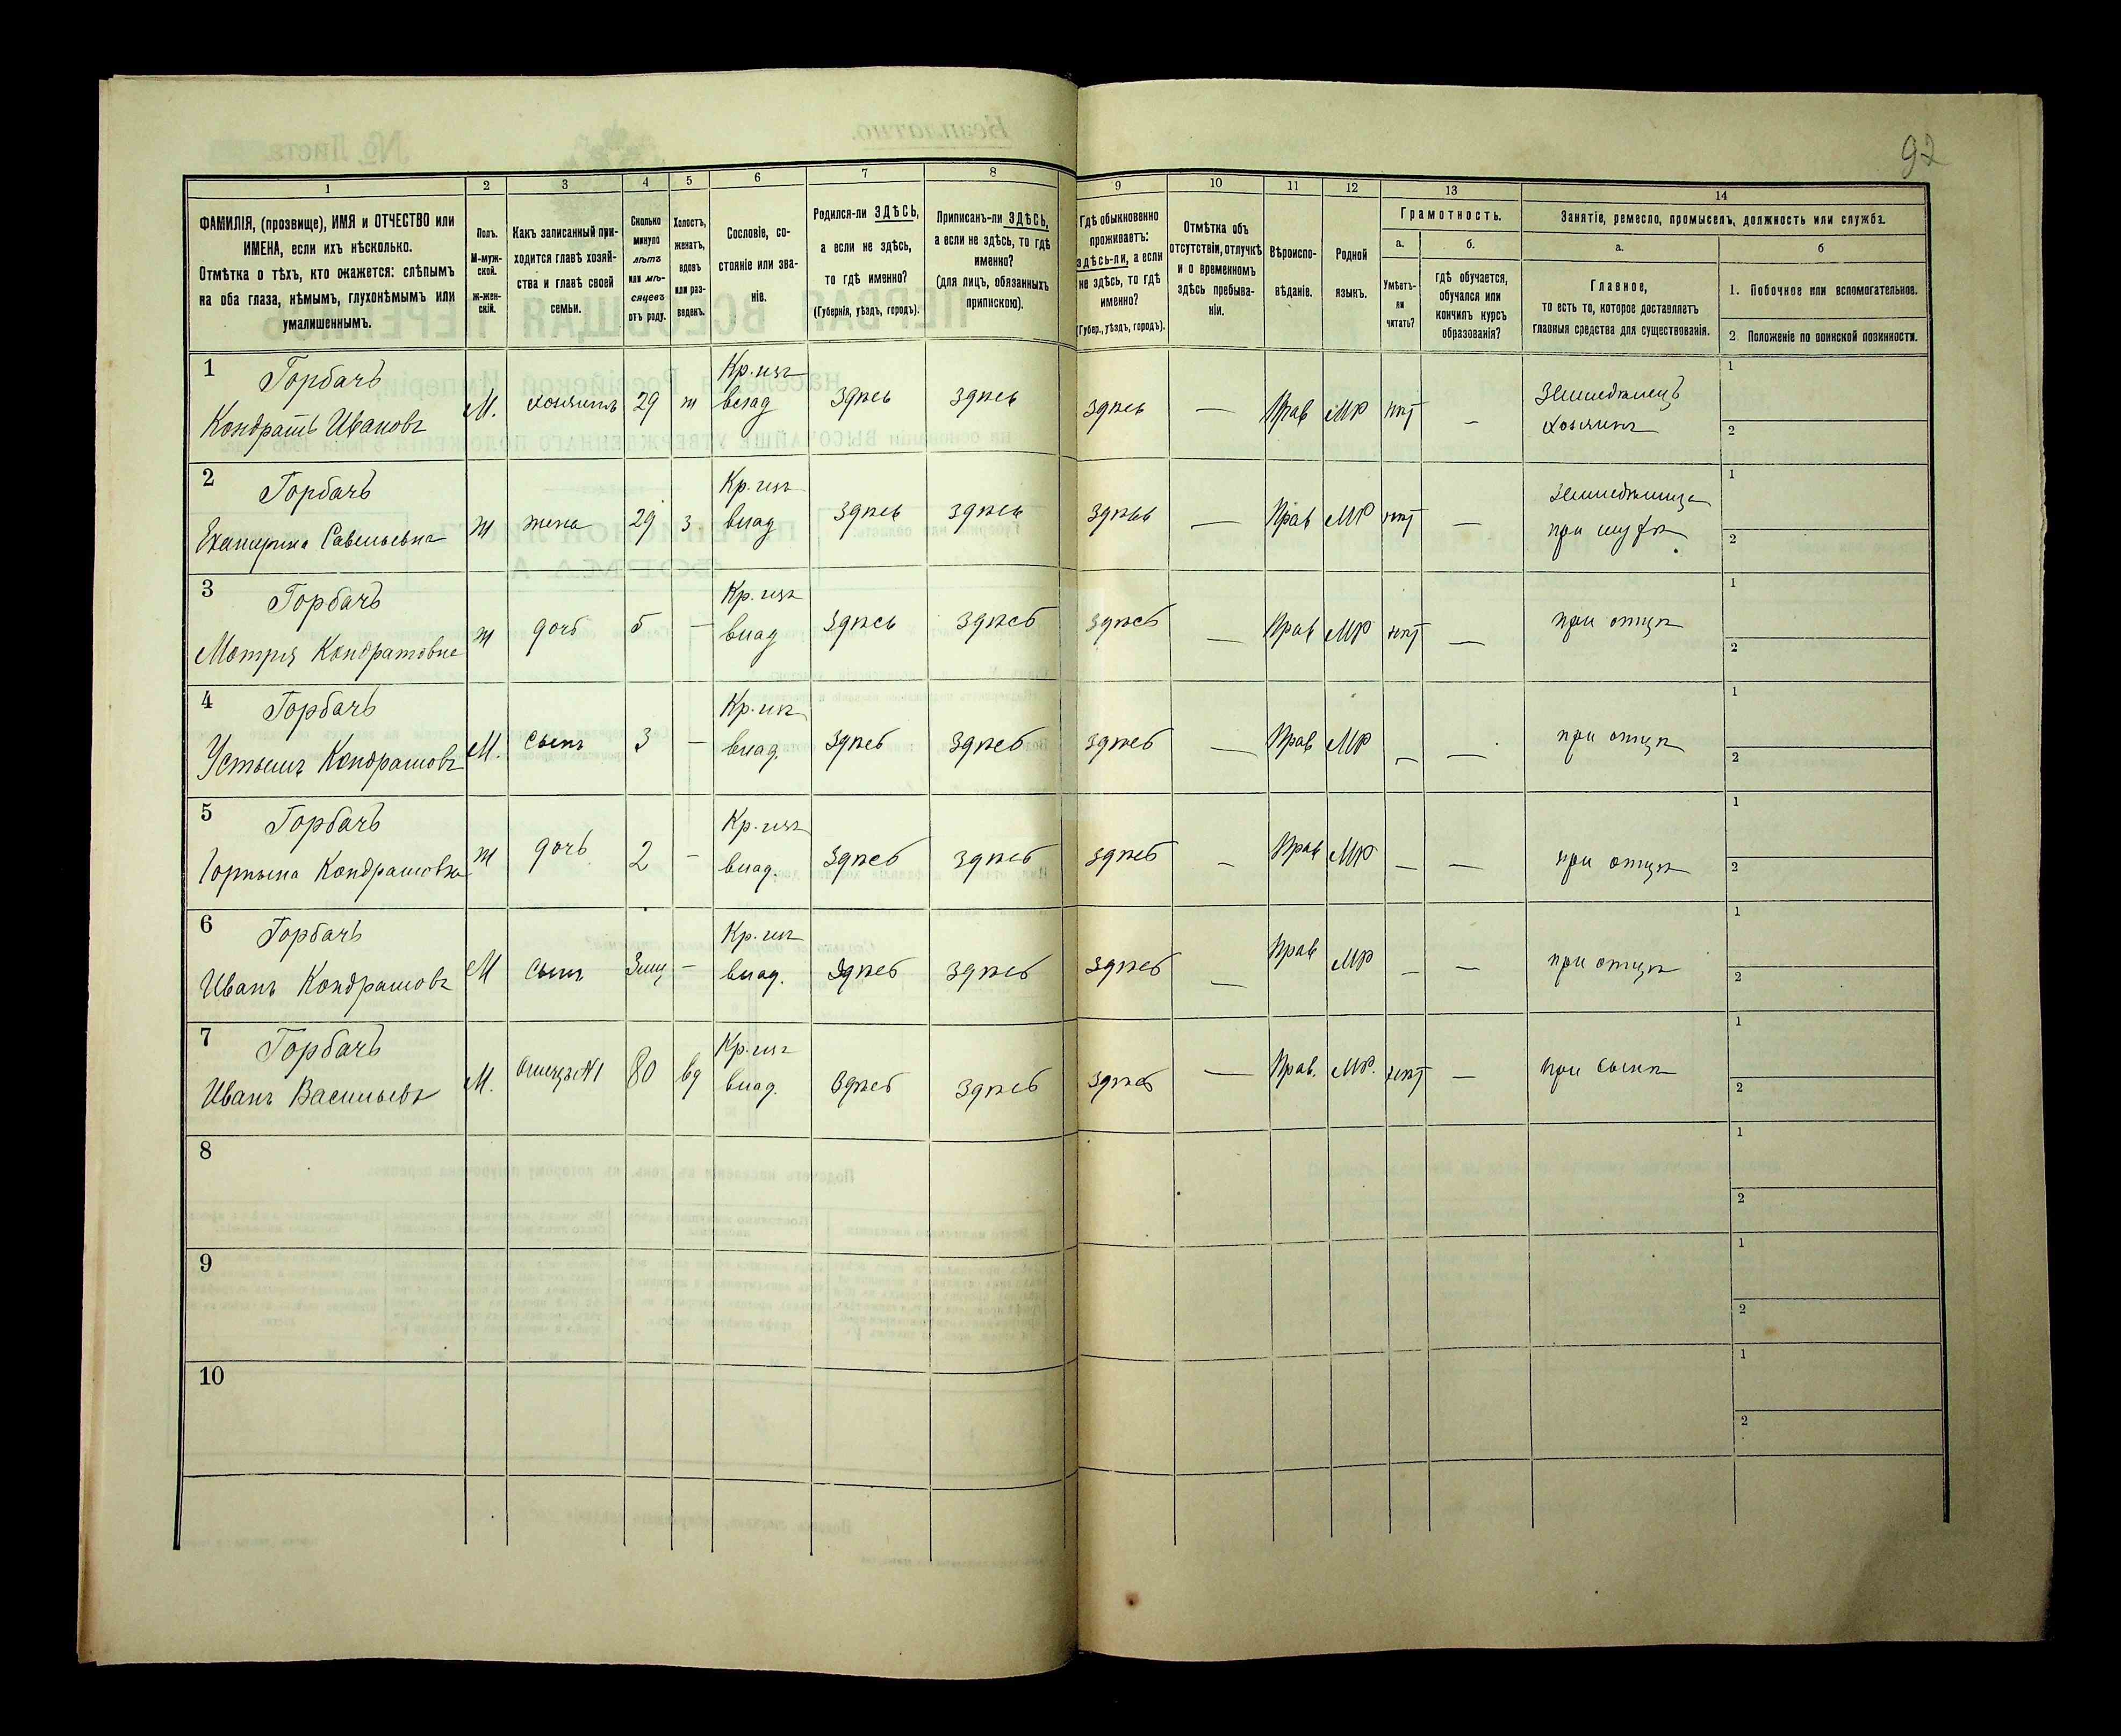 92
1 2 3 4 5 6 7 8 9 10 11 12 13 14
ФАМИЛІЯ, (прозвище), ИМЯ и ОТЧЕСТВО или
ИМЕНА, если ихъ нѣсколько.
Отмѣтка о тѣхъ, кто окажется: слѣпымъ
на оба глаза, нѣмымъ, глухонѣмымъ или
умалишеннымъ.
Полъ.
М-муж-
ской.
Ж-жен-
скій.
Какъ записанный при-
ходится главѣ хозяй-
ства и главѣ своей
семьи.
Сколько
минуло
лѣтъ
или мѣ-
сяцевъ
отъ роду.
Холостъ,
женатъ,
вдовъ
или раз-
веденъ.
Сословіе, со-
стояніе или зва-
ніе.
Родился-ли ЗДѢСЬ,
а если не здѣсь,
то гдѣ именно?
(Губернія, уѣздъ, городъ).
Приписанъ-ли ЗДѢСЬ,
а если не здѣсь, то гдѣ
именно?
(для лицъ, обязанныхъ
припискою).
Гдѣ обыкновенно
проживаетъ:
здѣсь-ли, а если
не здѣсь, то гдѣ
именно?
(Губер., уѣздъ, городъ).
Отмѣтка объ
отсутствіи, отлучкѣ
и о временномъ
здѣсь пребыва-
ніи.
Вѣроиспо-
вѣданіе.
Родной
языкъ.
Грамотность.
а.
Умѣетъ-
ли
читать?
б.
гдѣ обучается,
обучался или
кончилъ курсъ
образованія?
Занятіе, ремесло, промыселъ, должность или служба.
а.
Главное,
то есть то, которое доставляетъ
главныя средства для существованія.
б
1. Побочное или вспомогательное.
2. Положеніе по воинской повинности.
1 Горбачъ Кр. изъ 1
Кондратъ Ивановъ М. хозяинъ 29 ж влад здѣсь здѣсь здѣсь — Прав МР нѣт — Земледѣлецъ
хозяинъ 2
2 Горбачъ Кр. изъ 1
Екатерина Савельевна ж жена 29 з влад здѣсь здѣсь здѣсь — Прав МР нѣт — Земледѣлица
при мужѣ 2
3 Горбачъ Кр. изъ 1
Мотря Кондратовна ж дочь 5 — влад здѣсь здѣсь здѣсь — Прав МР нѣт — при отцѣ 2
4 Горбачъ Кр. изъ 1
Устымъ Кондратовъ М. сынъ 3 — влад. здѣсь здѣсь здѣсь — Прав МР — — при отцѣ 2
5 Горбачъ Кр. изъ 1
Горпына Кондратовна ж дочь 2 — влад. здѣсь здѣсь здѣсь — Прав МР — — при отцѣ 2
6 Горбачъ Кр. изъ 1
Иванъ Кондратовъ М сынъ 3 мц — влад. здѣсь здѣсь здѣсь — Прав МР — — при отцѣ 2
7 Горбачъ Кр. изъ 1
Иванъ Васильевъ М. Отецъ №1 80 вд влад. здѣсь здѣсь здѣсь — Прав. МР. нѣт — При сынѣ 2
8 1
2
9 1
2
10 1
2